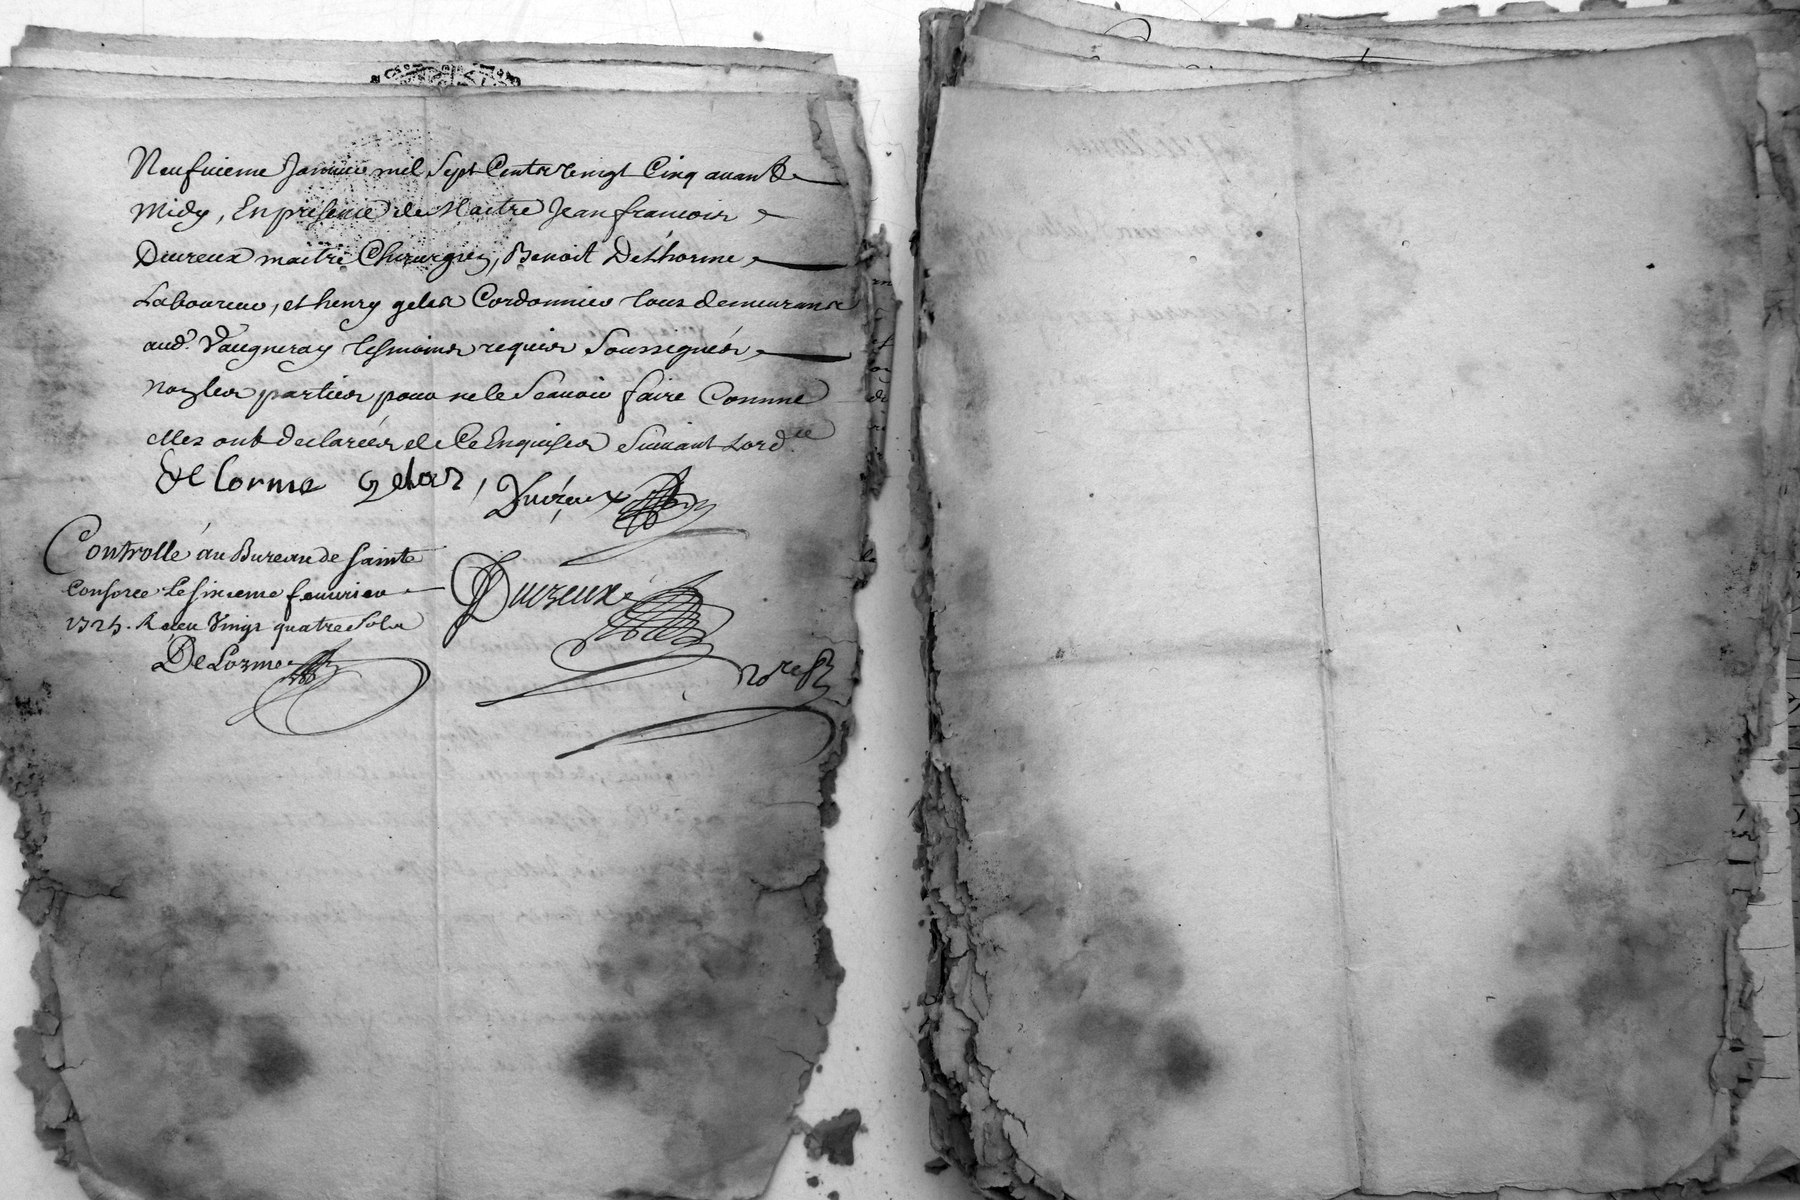 Neufuieme Januier mil Sept Cents Vingt Cinq auant
Midy, En presence de Maitre Jean francois
Ducreux maitre Chirurgien, Benoit Delhorme
Laboureur, et henry gelas Cordonnier tous demeurans
aud. Vaugneray tesmoins requis Soussignés
non les parties pour ne le Scauoir faire Comme
elles ont declarées de Ce Enquises Suiuant Lord.ce
De lorme gelas, Ducreux
Controllé au Bureau de Sainte
Consorce Le Sixieme feurier
1725. Receu Vingt quatre Sols
DeLorme
Ducreux
no.re R.